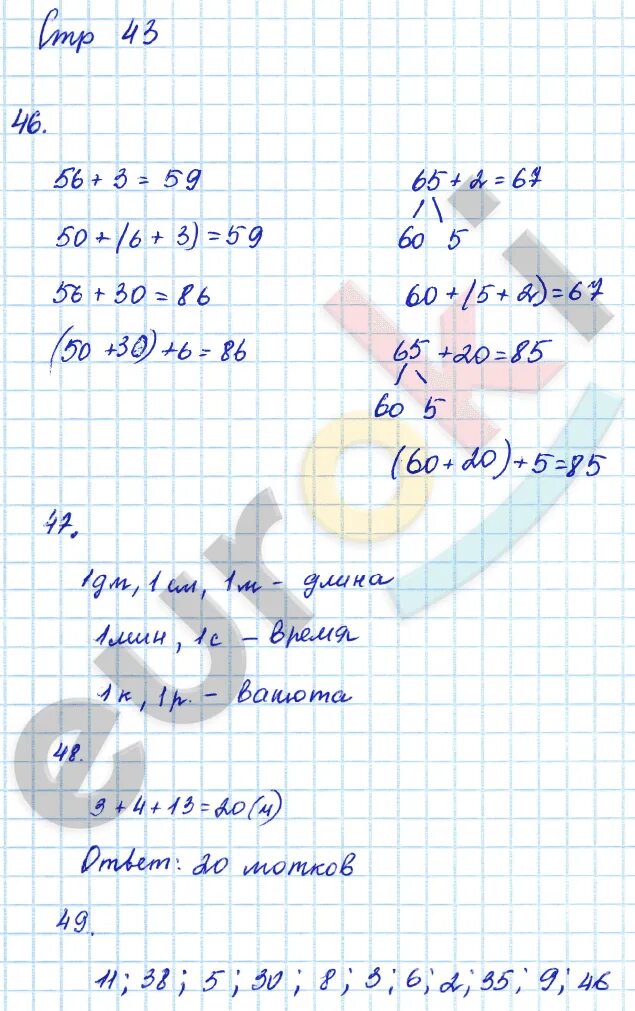 Стр 43
46.
56 + 3 = 59
50 + (6 + 3) = 59
56 + 30 = 86
(50 + 30) + 6 = 86
65 + 2 = 67
60 5
60 + (5 + 2) = 67
65 + 20 = 85
60 5
(60 + 20) + 5 = 85
47.
1дм, 1 см, 1м - длина
1мин, 1с - время
1к, 1р. - валюта
48.
3 + 4 + 13 = 20 (м)
Ответ: 20 мотков
49.
11; 38; 5; 30; 8; 3; 6; 2; 35; 9; 46
euroki